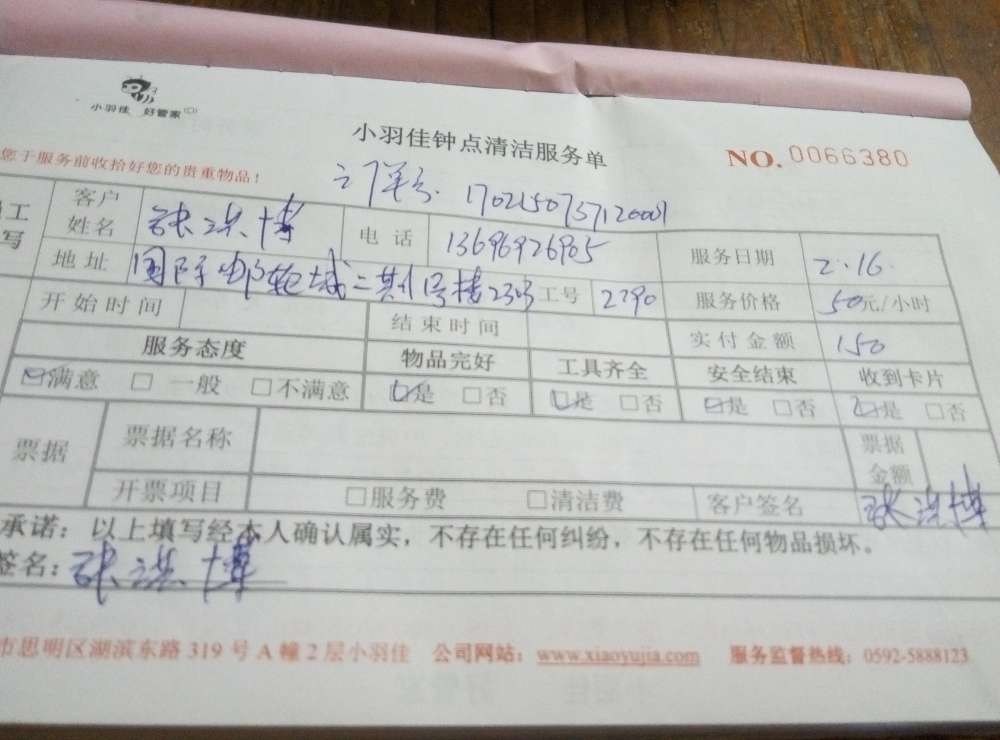 小羽佳 好管家
小羽佳钟点清洁服务单
NO. 0066380
您于服务前收拾好您的贵重物品！
订单号. 1702150757120001
工
写
客户
姓名
电话 13696926905
服务日期 2.16.
地址 国际邮轮城二期1号楼2303
工号 2790
服务价格 50元/小时
开始时间
结束时间
实付金额 150
服务态度 物品完好 工具齐全 安全结束 收到卡片
☑满意 □一般 □不满意 ☑是 □否 ☑是 □否 ☑是 □否 ☑是 □否
票据 票据名称
票据
金额
开票项目 □服务费 □清洁费 客户签名
承诺：以上填写经本人确认属实，不存在任何纠纷，不存在任何物品损坏。
签名：
市思明区湖滨东路 319 号 A 幢 2 层小羽佳 公司网站：www.xiaoyujia.com 服务监督热线：0592-5888123